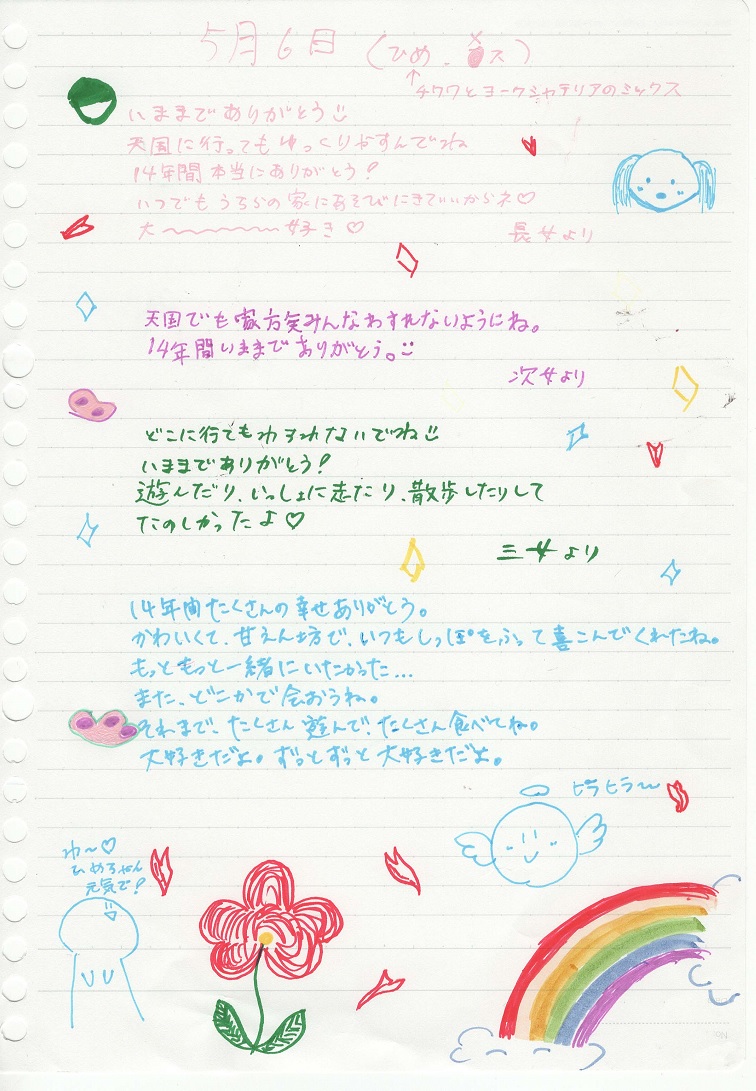 5月6日 (ひめ. ス)
↑チワワとヨークシャテリアのミックス
いままでありがとう
天国に行ってもゆっくりやすんでね
14年間本当にありがとう!
いつでもうちらの家にあそびにきていいからネ♡
大〜〜〜〜好き♡
長女より
天国でも みんなわすれないようにね。
14年間いままでありがとう。
次女より
どこに行てもわすれないでね
いままでありがとう!
遊んだり、いっしょに走たり、散歩したりして
たのしかったよ♡
三女より
14年間たくさんの幸せありがとう。
かわいくて、甘えん坊で、いつもしっぽをふって喜こんでくれたね。
もっともっと一緒にいたかった...
また、どこかで会おうね。
それまで、たくさん遊んで、たくさん食べてね。
大好きだよ。ずっとずっと大好きだよ。
ヒラヒラ〜
わ〜♡
ひめちゃん
元気で!